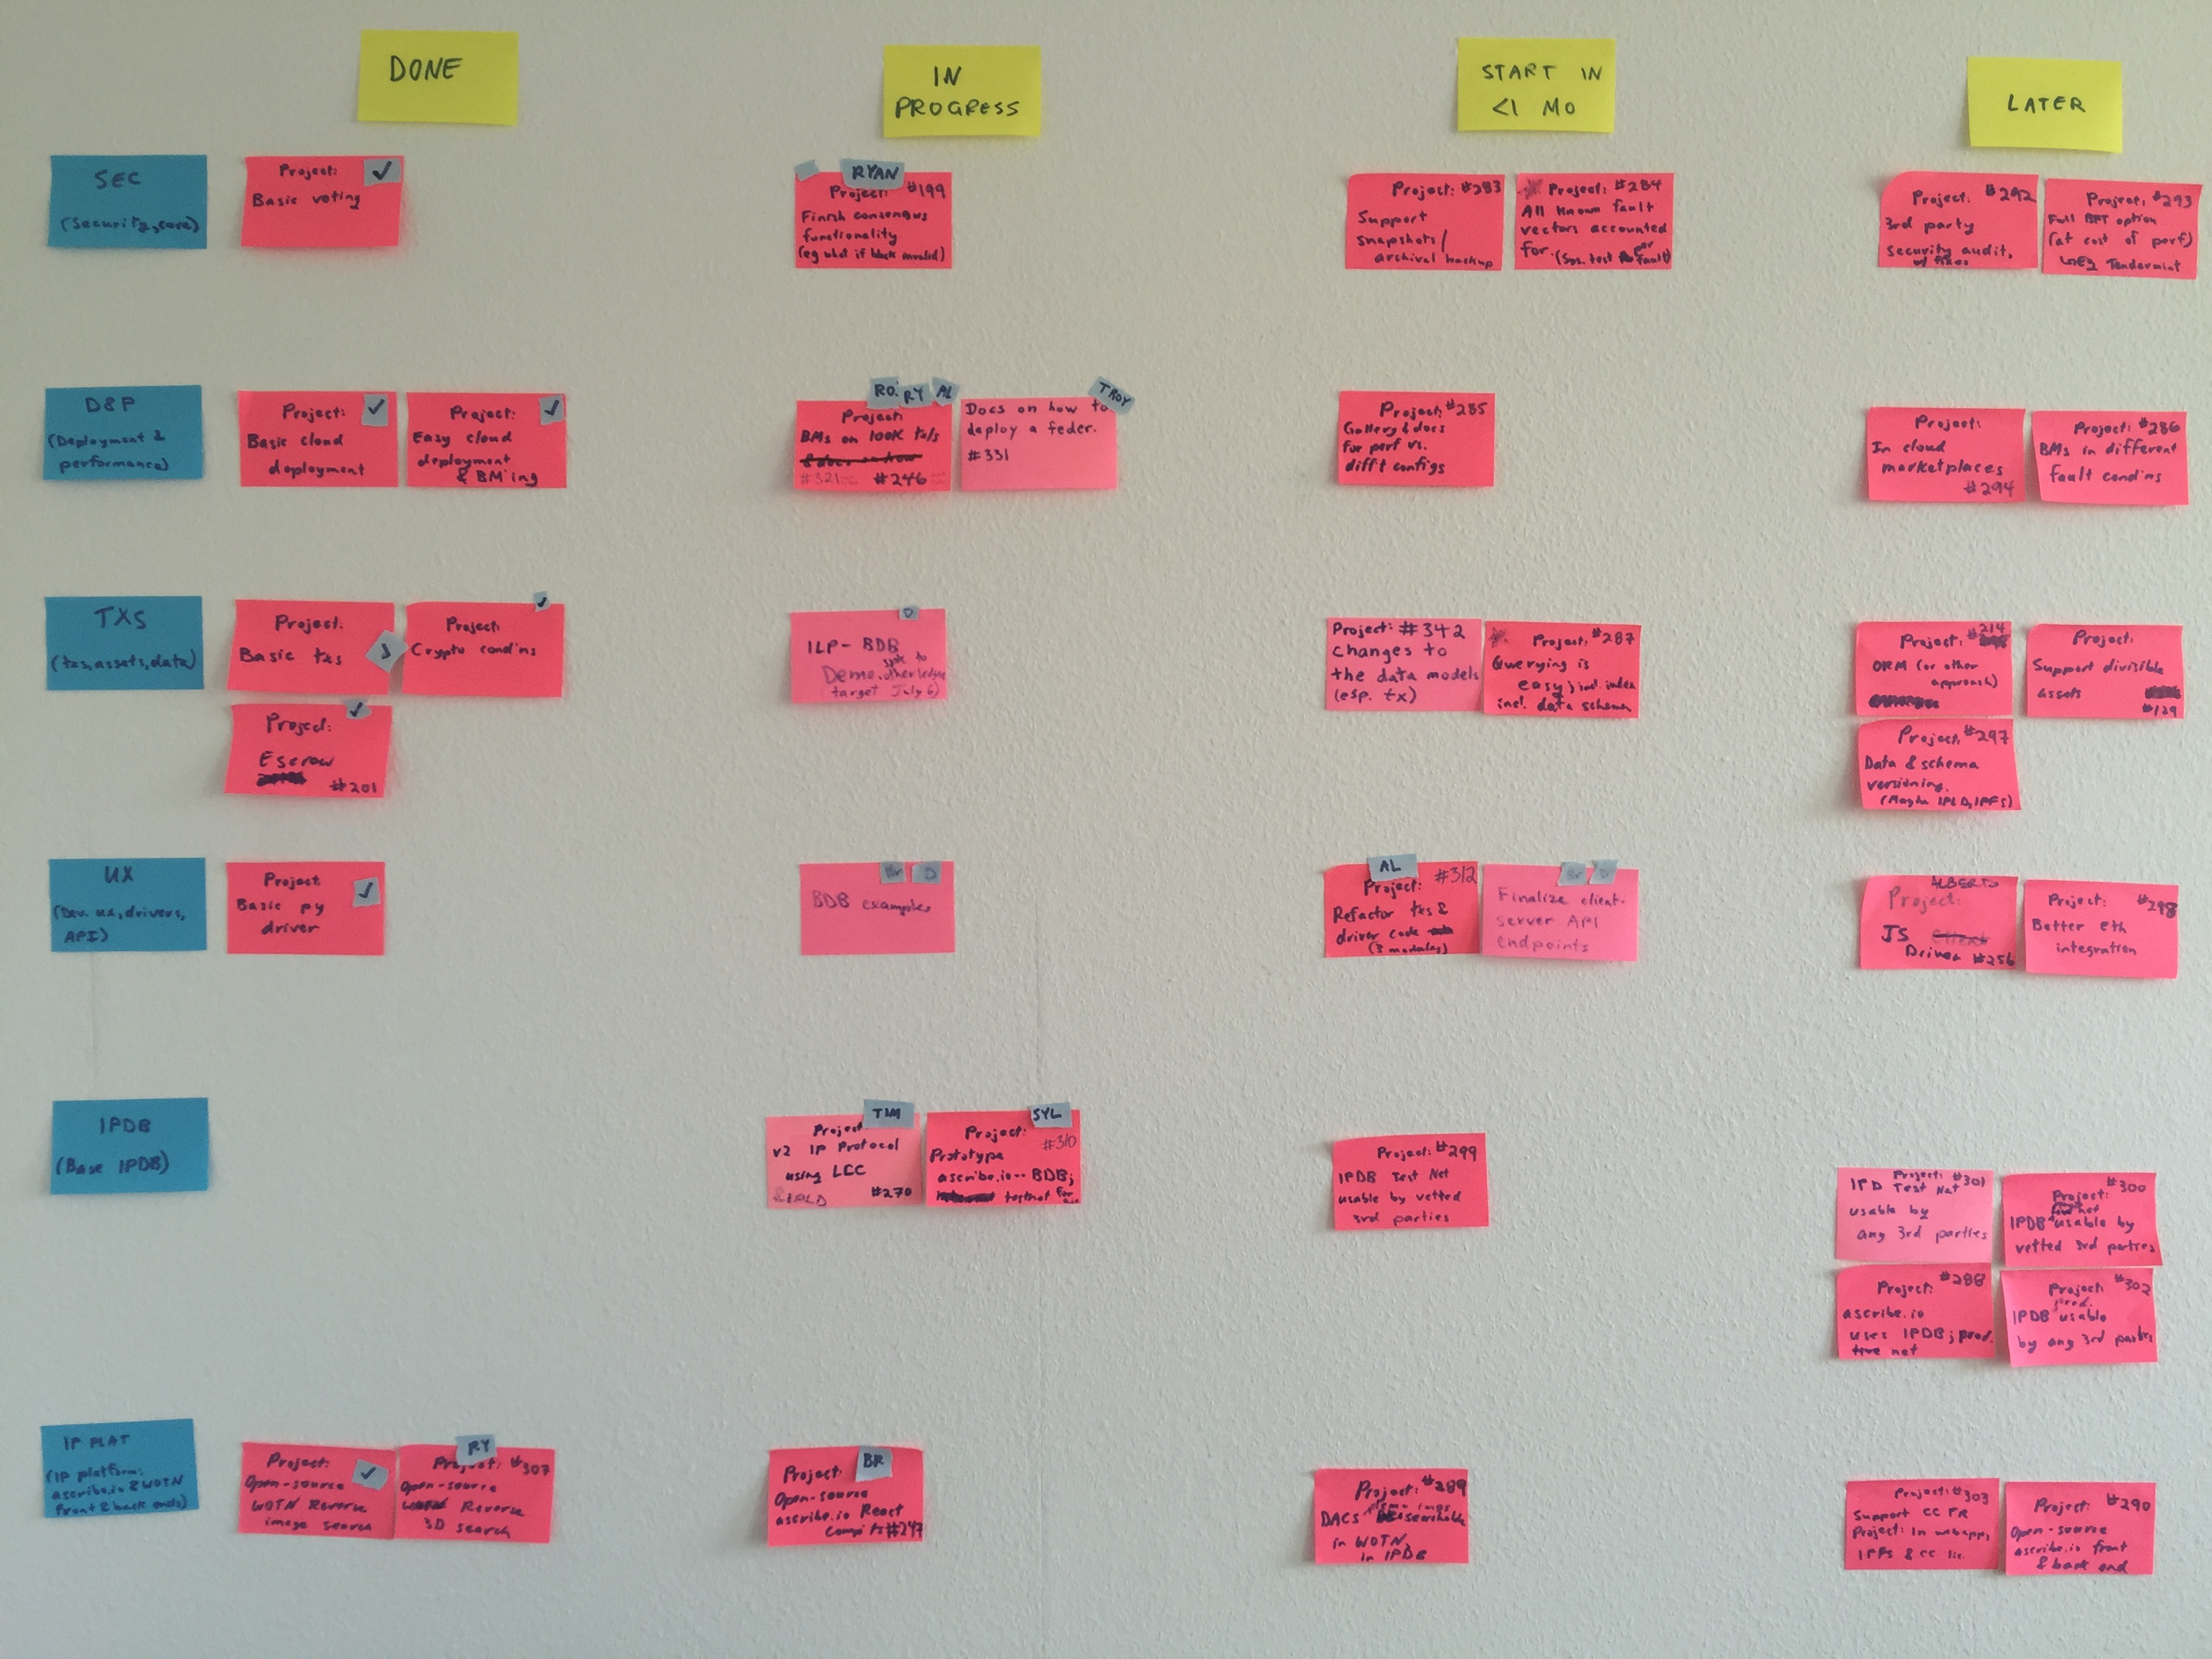 DONE
IN
PROGRESS
START IN
<1 MO
LATER
SEC
(Security, core)
Project:
Basic voting
RYAN
Project: #199
Finish consensus
functionality
(eg what if block invalid)
Project: #283
Support
snapshots/
archival backup
Project: #284
All known fault
vectors accounted
for. (Sys. test per fault)
Project: #292
3rd party
security audit,
w/ fixes
Project: #293
Full BFT option
(at cost of perf)
Tendermint
D&P
(Deployment &
performance)
Project:
Basic cloud
deployment
Project:
Easy cloud
deployment
& BM'ing
RO. RY AL
Project:
BMs on 100K tx/s
& docs on how
#321 #246
TROY
Docs on how to
deploy a feder.
#331
Project: #285
Gallery & docs
for perf vs.
diff't configs
Project:
In cloud
marketplaces
#294
Project: #286
BMs in different
fault cond'ns
TXS
(txs, assets, data)
Project:
Basic txs
Project:
Crypto cond'ns
Project:
Escrow
#201
D
ILP-BDB
Demo.
(target July 6)
Project: #342
Changes to
the data models
(esp. tx)
Project: #287
Querying is
easy; incl. index
incl. data schema
Project: #214
ORM (or other
approach)
Project:
Support divisible
assets
#129
Project: #297
Data & schema
versioning.
(Maybe IPLD, IPFS)
UX
(Dev. ux, drivers,
API)
Project
Basic py
driver
Br D
BDB examples
AL
Project: #312
Refactor txs &
driver code
(3 modules)
Br D
Finalize client-
server API
endpoints
ALBERTO
Project:
JS Client
Driver #256
Project: #298
Better Eth
integration
IPDB
(Base IPDB)
TIM
Project
v2 IP Protocol
using LCC
& IPLD #270
SYL
Project:
#310
Prototype
ascribe.io--BDB;
testnet for
Project: #299
IPDB Test Net
usable by vetted
3rd parties
Project: #301
IPD Test Net
usable by
any 3rd parties
#300
Project:
IPDB usable by
vetted 3rd parties
Project: #288
ascribe.io
uses IPDB; prod.
net
Project: #302
prod.
IPDB usable
by any 3rd parties
IP PLAT
(IP platform:
ascribe.io & WOTN
front & back ends)
Project:
Open-source
WOTN Reverse
image search
RY
Project: #307
Open-source
Reverse
3D search
BR
Project:
Open-source
ascribe.io React
comp'ts #247
Project: #289
DACS searchable
in WOTN,
in IPDB
Project: #303
Support CC FR
Project: In webapp,
IPFS & CC lic.
Project: #290
Open-source
ascribe.io front
& back end